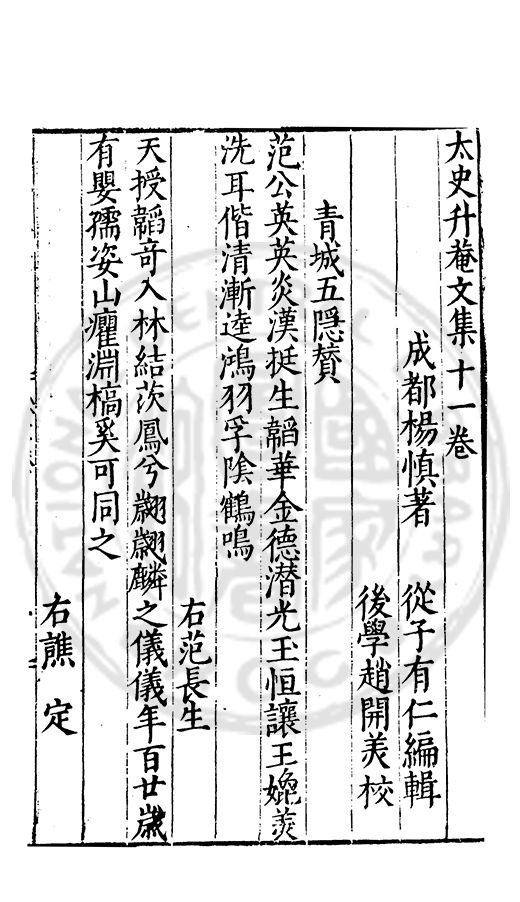 太史升菴文集十一卷
成都楊慎著　從子有仁編輯
後學趙開美校
青城五隠賛
范公英英炎漢挺生韜華金德潜光玉恒讓王媲羙
洗耳偕清漸逵鴻羽孚陰鶴鳴
右范長生
天授韜竒入林結茨鳳兮翽翽麟之儀儀年百廿歲
有嬰孺姿山癯淵槁奚可同之
右譙定